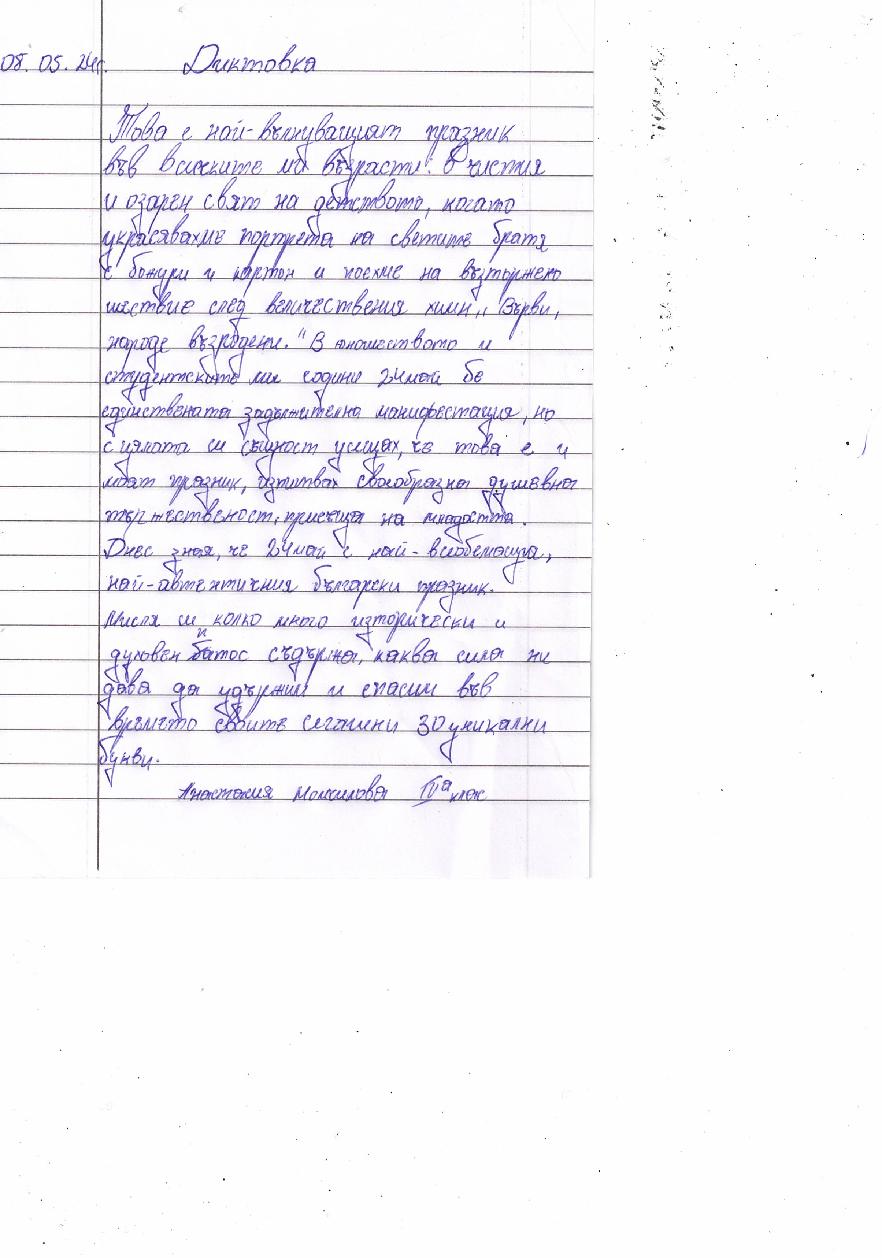 08. 05. 24г. Диктовка
Това е най-вълнуващият празник
във всичките ми възрасти. В чистия
и озарен свят на детството, когато
украсявахме портрета на светите братя
с божури и картон и поехме на възторжено
шествие след величествения химн „Върви,
народе възродени." В юношеството и
студентските ми години 24 май бе
единствената задължителна манифестация, но
с цялата си същност усещах, че това е и
моят празник, изпитвах своеобразна душевна
тържественост, присъща на младостта.
Днес зная, че 24 май е най-всеобемащия,
най-автентичния български празник.
Мисля си колко много изторически и
духовен патос съдържа, каква сила ни
дава да удържим и спасим във
времето своите сегашни 30 уникални
букви.
Анастасия Момчилова IVа клас